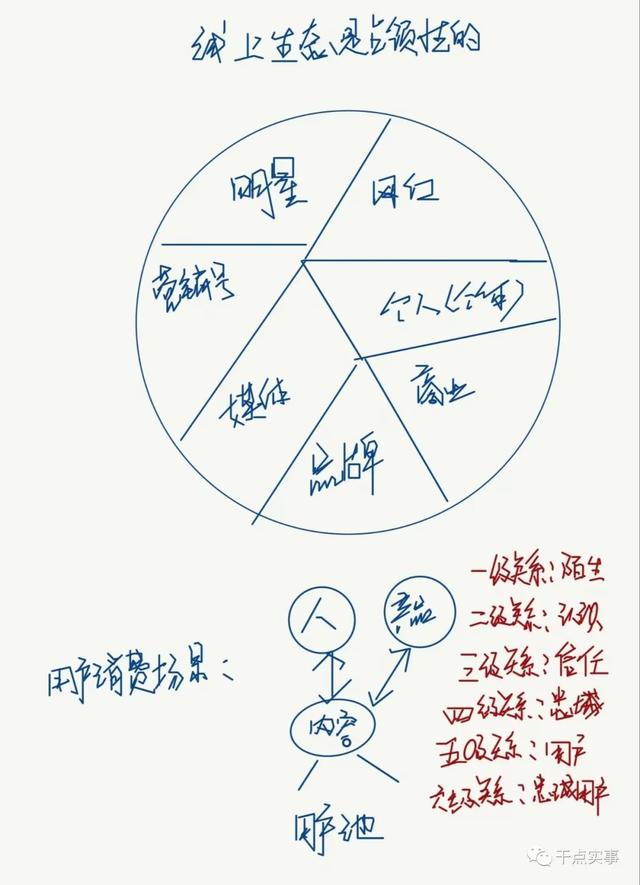 线上生态是占领性的
明星
网红
营销号
个人
媒体
商业
品牌
人
一级关系：陌生
二级关系：
三级关系：信任
用户消费场景：
四级关系：忠诚
内容
五级关系：用户
六级关系：忠诚用户
用户池
干点实事